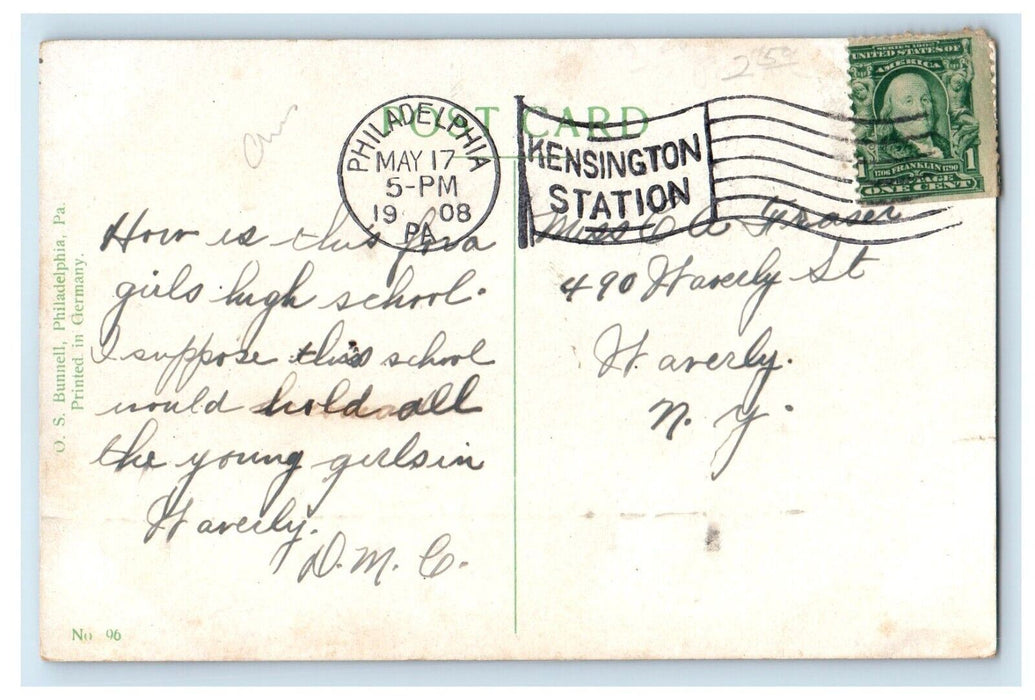 POST CARD
PHILADELPHIA
MAY 17
5-PM
19 08
PA
KENSINGTON
STATION
SERIES 1902
UNITED STATES OF
AMERICA
1706 FRANKLIN 1790
POSTAGE
1
ONE CENT
250
How is this for a
girls high school.
I suppose this school
would hold all
the young girls in
Waverly.
D. M. C.
Miss C A Fraser
490 Waverly St
Waverly.
N. Y.
O. S. Bunnell, Philadelphia, Pa.
Printed in Germany.
No 96